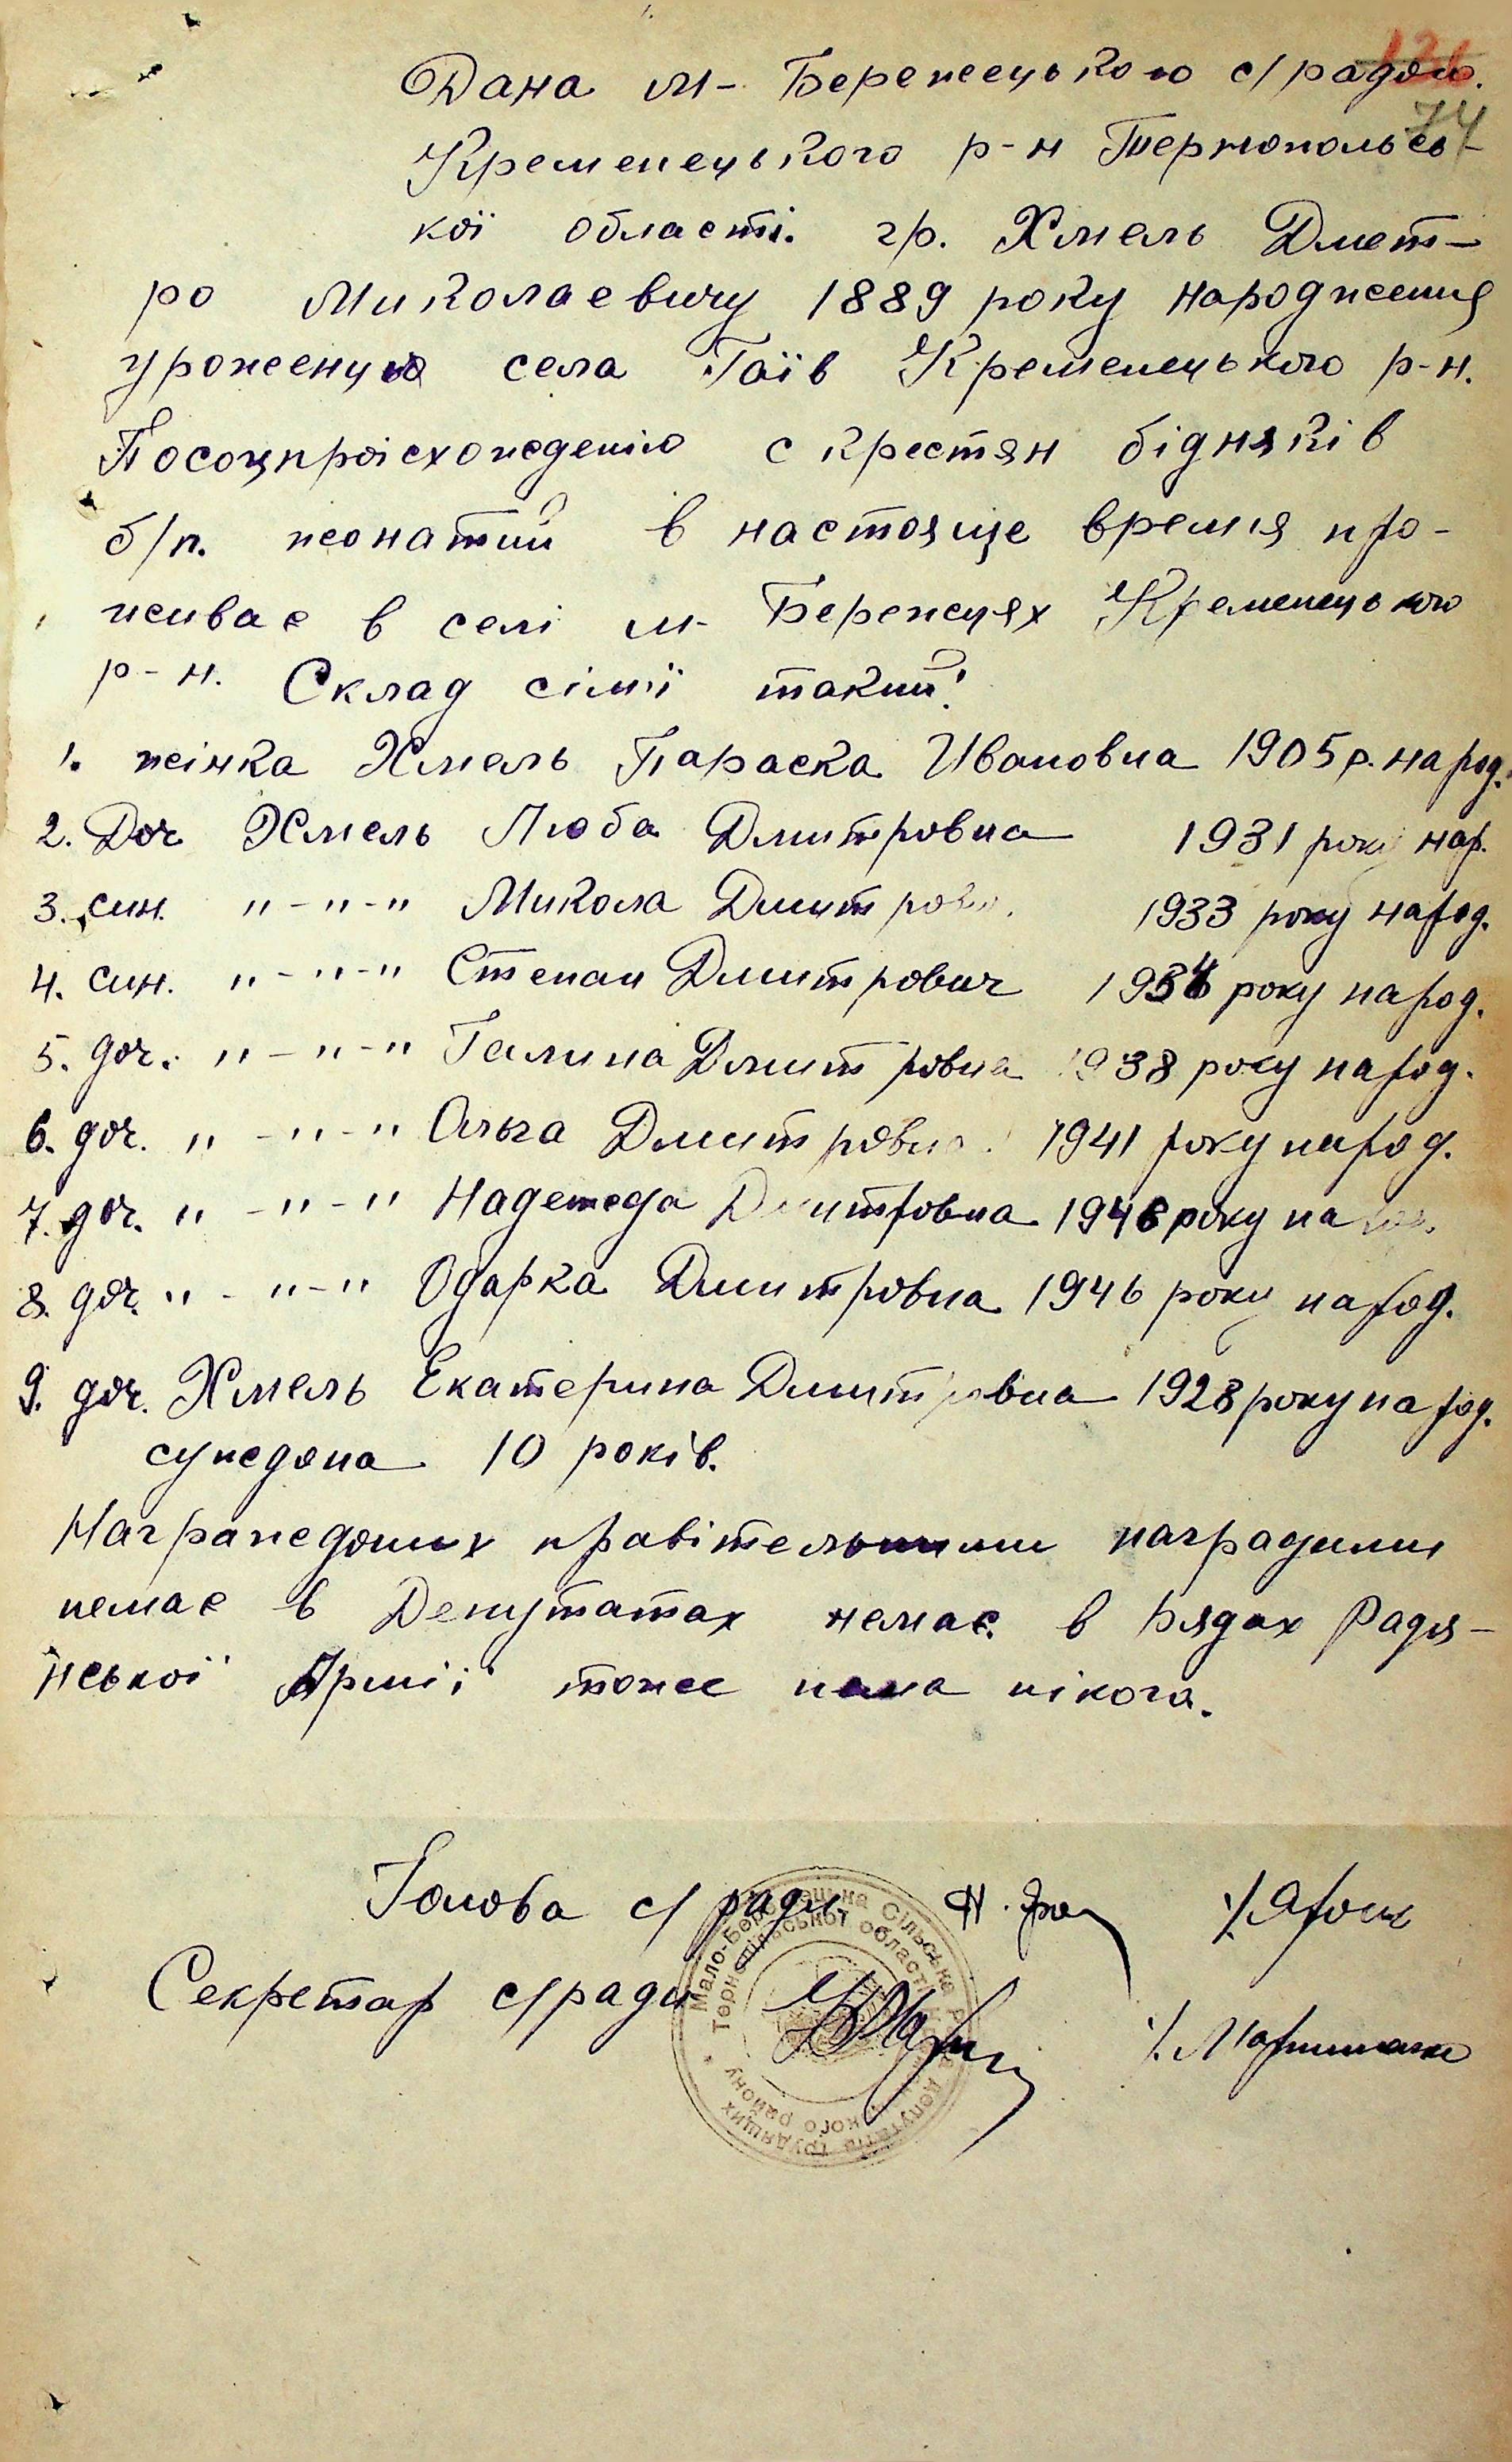 74
Дана М- Бережецькою с/радою.
Кременецького р-н Тернопольсь-
кої області. гр. Хмель Дмет-
ро Миколаевичу 1889 року народження
уроженцю села Гаїв Кременецького р-н.
Посоцпроісхождению с крестян бідняків
б/п. жонатий в настояще время про-
живає в селі м- Бережцях Кременецького
р-н. Склад сімії такий:
1. жінка Хмель Параска Ивановна 1905 р. народ.
2. Доч Хмель Люба Дмитровна 1931 року нар.
3. син. "-"-" Микола Дмитров. 1933 року народ.
4. син. "-"-" Степан Дмитрович 1934 року народ.
5. доч. "-"-" Галина Дмитровна 1938 року народ.
6. доч. "-"-" Ольга Дмитровна 1941 року народ.
7. доч. "-"-" Надежда Дмитровна року народ.
8. доч. "-"-" Одарка Дмитровна 1946 року народ.
9. доч. Хмель Екатерина Дмитровна 1928 року народ.
суждона 10 років.
Награждоних правітельними наградами
немає в Депутатах немає. в Рядах Радя-
нської Армії тоже нема нікого.
Голова с/ ради
Секретар с/ради
Мало-Бережецька Сільська Рада депутатів трудящих
Тернопільської області Кременецького району